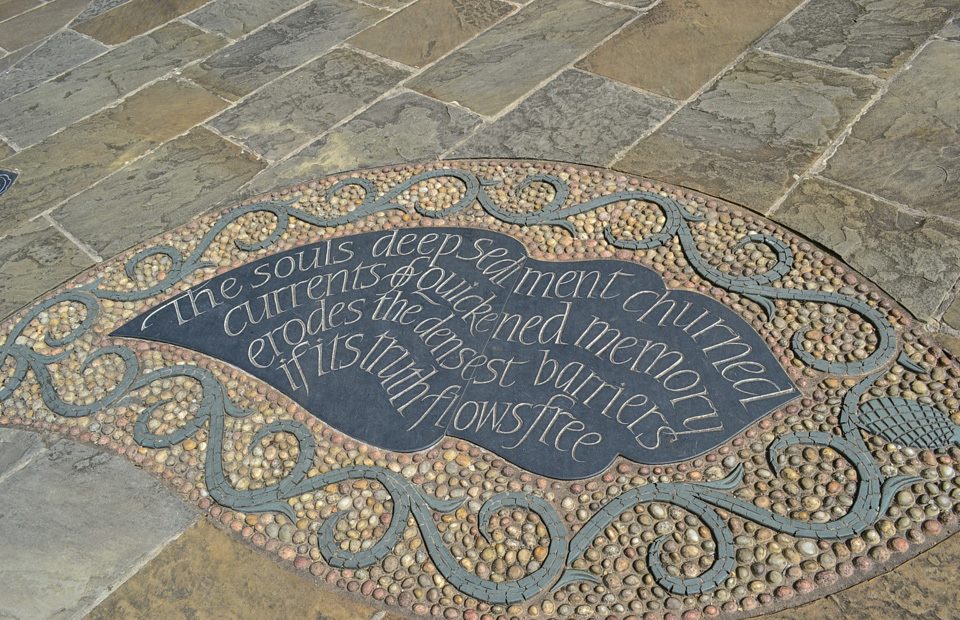 The souls deep sediment churned
currents & quickened memory
erodes the densest barriers
if its truth flows free